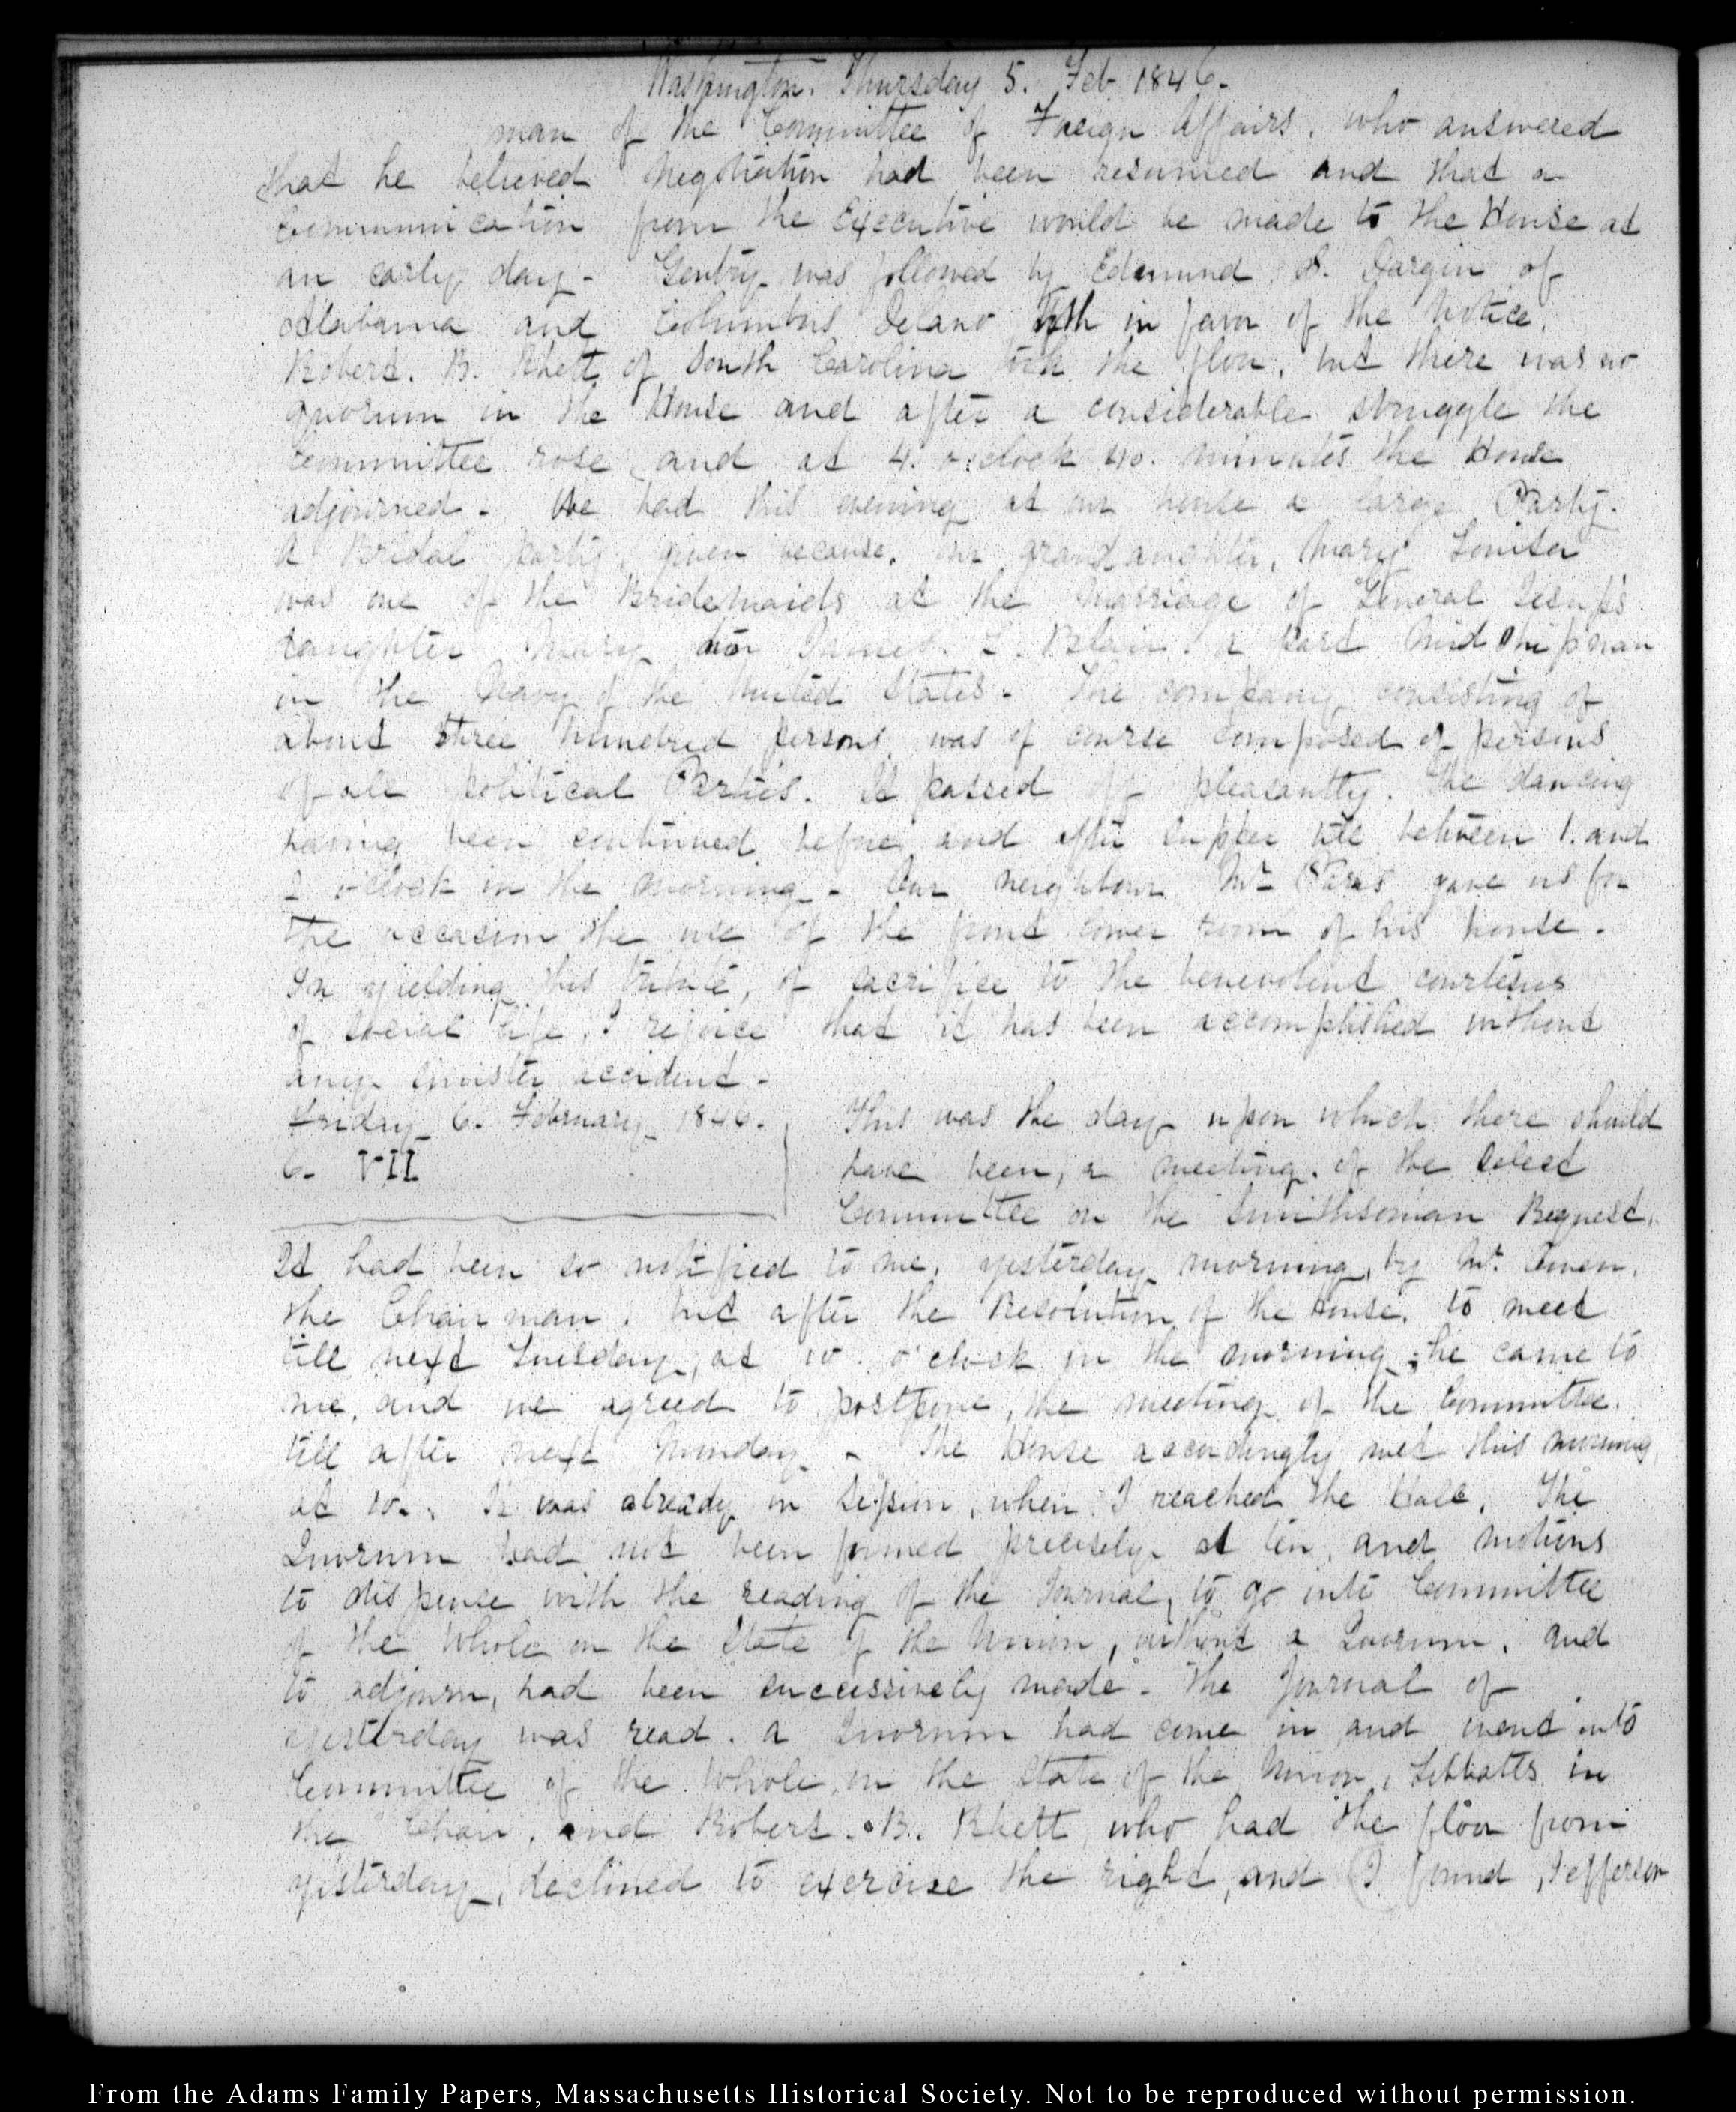 Washington. Thursday 5. Feb 1846.
man of the Committee of Foreign Affairs, who answered
that he believed Negotiation had been resumed and that a
Communication from the Executive would be made to the House at
an early day. Gentry was followed by Edmund S. Dargin of
Alabama and Columbus Delano both in favor of the Notice.
Robert. B. Rhett of South Carolina took the floor, but there was no
quorum in the House and after a considerable struggle the
Committee rose, and at 4. o'clock 40. minutes the House
adjourned. We had this evening at our house a large Party.
A Bridal party, given because, our grandaughter, Mary Louisa
was one of the Bridemaids at the Marriage of General Jesup's
daughter Mary to James. L. Blair. a Past Midshipman
in the Navy of the United States. The company consisting of
about three hundred persons, was of course composed of persons
of all political Parties. It passed off pleasantly. The dancing
having been continued before and after supper till between 1. and
2 o'clock in the morning. Our neighbour Mr gave us for
the occasion the use of the front lower room of his house.
In yielding this tribute, of sacrifice to the benevolent courtesies
of social life, I rejoice that it has been accomplished without
any sinister accident.
Friday 6. February 1846.
6. VII
This was the day upon which there should
have been, a meeting of the Select
Committee on the Smithsonian Bequest.
It had been so notified to me, yesterday morning, by Mr. Owen,
the Chairman, but after the Resolution of the House, to meet
till next Tuesday, at 10. o'clock in the morning, he came to
me, and we agreed to postpone, the meeting of the Committee.
till after next Monday. The House accordingly met this morning
at 10. It was already in Session, when I reached the Hall. The
Quorum had not been formed precisely at ten, and motions
to dispense with the reading of the Journal, to go into Committee
of the Whole on the State of the Union, without a Quorum, and
to adjourn, had been successively made. The Journal of
yesterday was read. a Quorum had come in and went into
Committee of the Whole, on the State of the Union, Tibbatts in
the Chair, and Robert. B. Rhett, who had the floor from
yesterday, declined to exercise the right, and I found, Jefferson
From the Adams Family Papers, Massachusetts Historical Society. Not to be reproduced without permission.